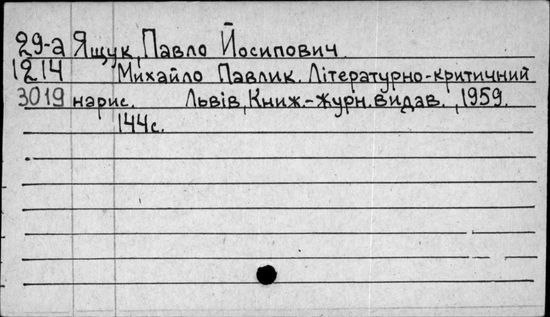 29-а Ящук, Павло Йосипович.
1214 Михайло Павлик. Літературно-критичний
3019 нарис. Львів, Книж.-журн. видав., 1959.
144с.